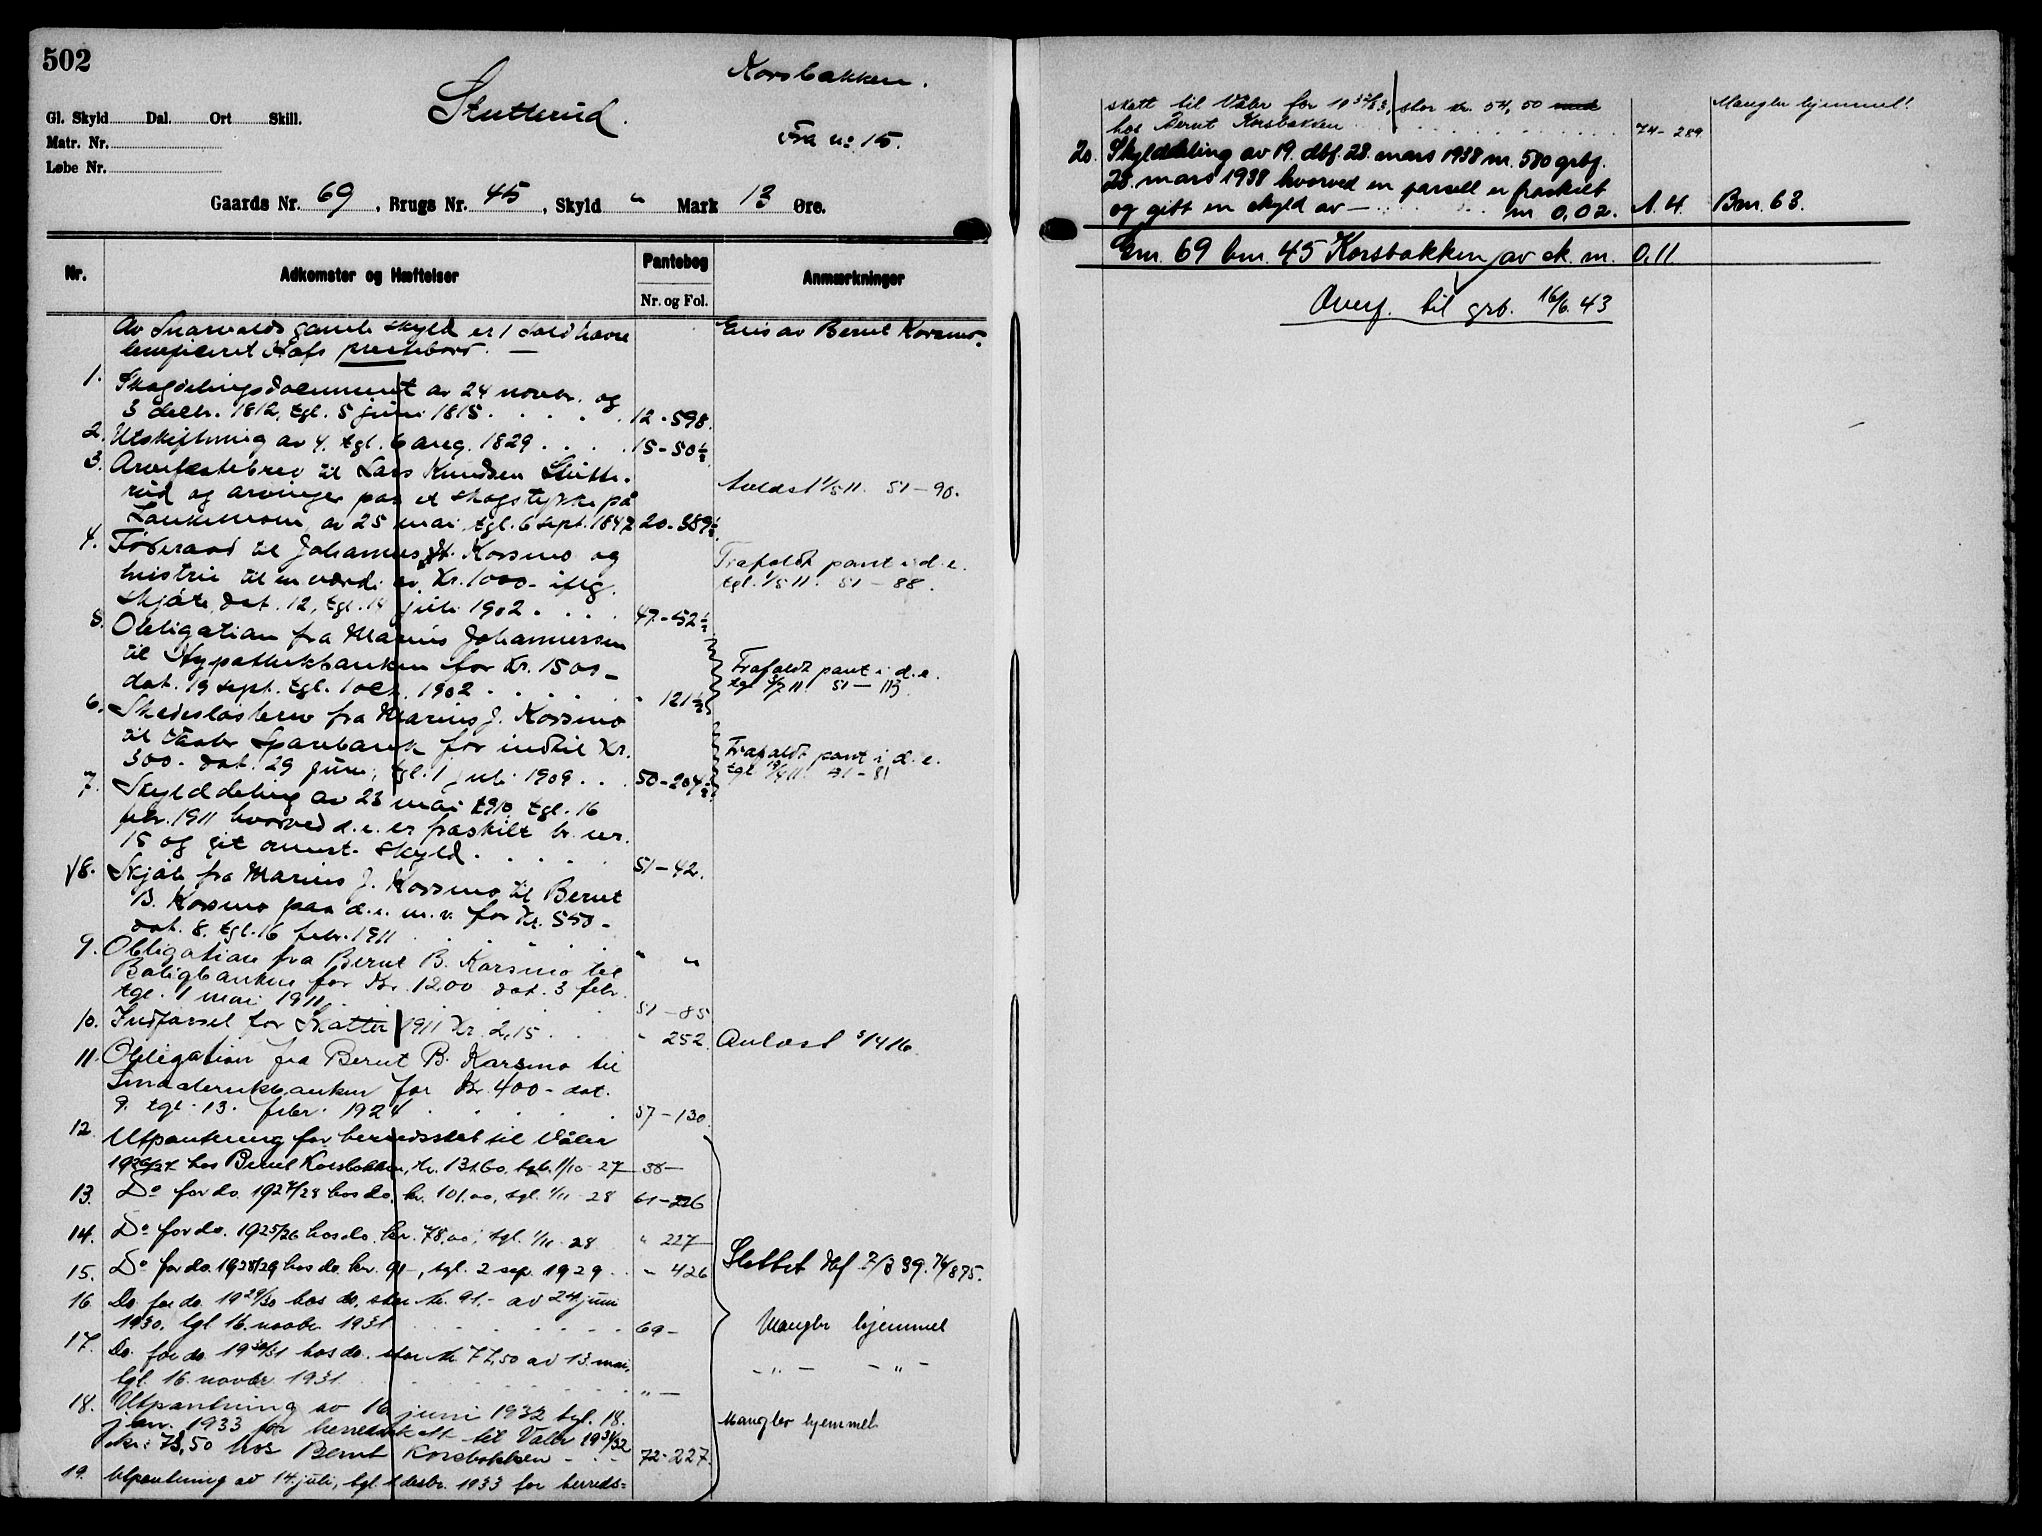 502
Korsbakken.
Stutterud.
Fra nº 15.
Gl. Skyld Dal. Ort Skill.
Matr. Nr.
Løbe Nr.
Gaards Nr. 69, Brugs Nr. 45, Skyld " Mark 13 Øre.
Nr. Adkomster og Hæftelser Pantebog Anmærkninger
Nr. og Fol.
Av Snarvolds gamle skyld er 1 sold havre Eies av Bernt Korsmo.
beneficeret Hofs prestebord. —
1. Skogdelingsdocument av 24 novbr. og
3 decbr. 1812, tgl. 5 juni 1815. 12-598.
2. Utskiftning av 4. tgl. 6 aug. 1829 15-50½
3. Arvefæstebrev til Lars Knudsen Stutte-
rud og arvinger paa et skogstykke på Avløst 1/5 11. 51-90.
av 25 mai, tgl. 6 sept. 1847 20-389½
4. Føderaad til Johannes H. Korsmo og Frafaldt pant i d.e.
hustru til en værdi av Kr. 1000- iflg. tgl. 1/5 11. 51-88.
skjøte, dat. 12, tgl. 14 juli 1902. 47-52½
5. Obligation fra Marius Johannessen
til Hypothekbanken for Kr. 1500- Frafaldt pant i d.e.
dat. 19 sept. tgl. 1 oct. 1902. " 121½ 51-113
6. Skadesløsbrev fra Marius J. Korsmo
til Vaaler Sparebank for indtil Kr. Frafaldt pant i d.e.
300- dat. 29 juni, tgl. 1 juli 1909. 50-204½ 51-81
7. Skylddeling av 23 mai 1910, tgl. 16
febr. 1911 hvorved d.e. er fraskilt br. nr.
15 og git anmst. skyld. 51-42.
√8. Skjøte fra Marius J. Korsmo til Bernt
B. Korsmo paa d.e. m.v. for Kr. 550-
dat. 8. tgl. 16 febr. 1911 " "
9. Obligation fra Bernt B. Korsmo til
Boligbanken for Kr. 1200 dat. 3 febr.
tgl. 1 mai 1911. 51-85
10. Indførsel for Skatter 1911 Kr. 2,15 " 252. Avløst 5/14 16.
11. Obligation fra Bernt B. Korsmo til
Småbrukbanken for Kr. 400- dat.
9. tgl. 13. febr. 1924 57-130.
12. Utpantning for herredsskat til Våler
1926/27 hos Bernt Korsbakken, kr. 131.60, tgl. 1/10 27 58-
13. Do for do. 1927/28 hos do. kr. 101.00, tgl. 1/11 28 61-226
14. Do for do. 1925/26 hos do. kr. 78,00, tgl. 1/11 28 " 227
15. Do for do. 1928/29 hos do. kr. 91-, tgl. 2 sep. 1929. " 426 Slettet dbf. 7/3 39. 74/875.
16. Do. for do. 1929/30 hos do, stor kr. 91.- av 24 juni
1930. tgl. 16. novbr. 1931 69- Mangler hjemmel
17. Do. for do. 1930/31 hos do. stor kr. 77,50 av 13. mai, -"- -"-
tgl. 16. novbr. 1931. "-
18. Utpantning av 16. juni 1932 tgl. 18. Mangler hjemmel
jan. 1933 for herredskatt til Våler 1931/32
kr: 73,50 hos Bernt Korsbakken 72-227.
19. Utpantning av 14. juli, tgl. 1 desbr. 1933 for herreds-
skatt til Våler for 1932/33, stor kr. 54,50 Mangler hjemmel!
hos Bernt Korsbakken 74-289
20. Skylddeling av 19. dbf. 28. mars 1938 nr. 580 grbf.
28. mars 1938 hvorved en parsell er fraskilt
og gitt en skyld av — m 0,02. A.4. Bnr. 63.
Gnr. 69 bnr. 45 Korsbakken av sk. m. 0,11
Overf. til grb. 16/6 43